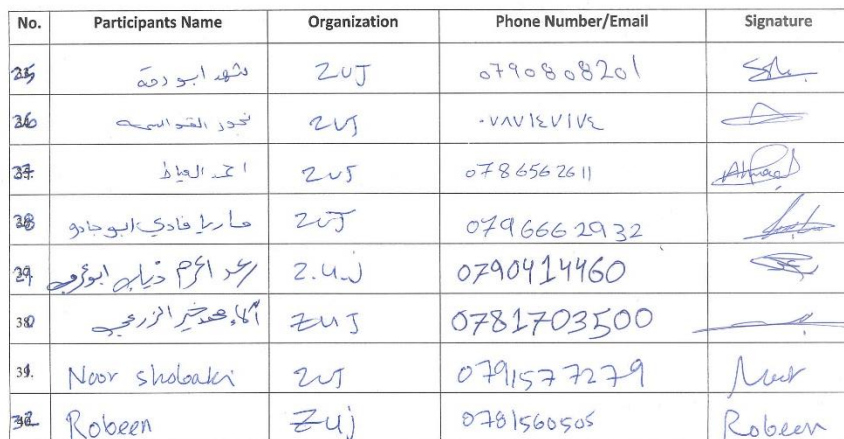 No. Participants Name Organization Phone Number/Email Signature
شهد ابو رمة ZUJ 0790808201
القواسمه ZUJ ٠٧٨٧١٤٧١٧٤
احمد العياط ZUJ 0786562611 Ahmad
ماريا فادي ابو جادو ZUJ 0796662932
رغد اكرم ذياب Z.U.J 0790414460
آلاء محمد خير الزرعي ZUJ 0781703500
39. Noor shobaki ZUJ 0791577279 Noor
Robeen ZUJ 0781560505 Robeen